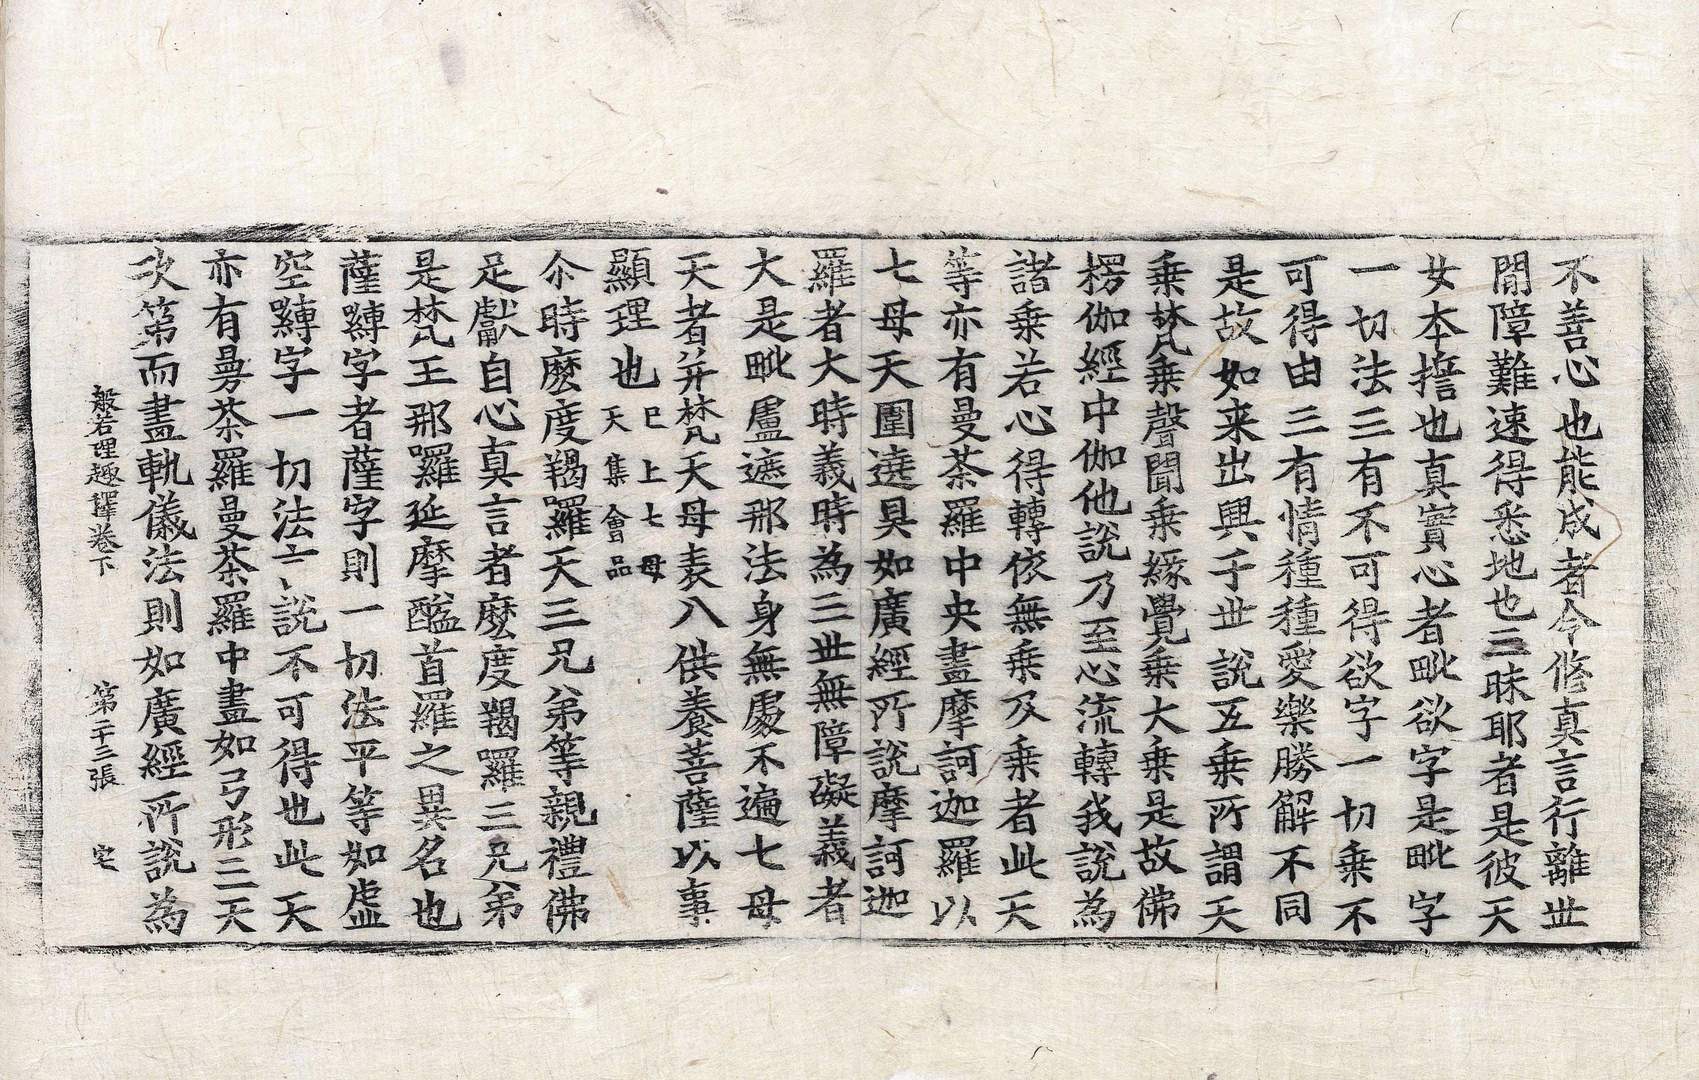 不善心也能成者今修真言行離世
間障難速得悉地也三昧耶者是彼天
女本擔也真實心者毗欲字是毗字
一切法三有不可得欲字一切乗不
可得由三有情種種愛樂勝解不同
是故如来出興于世說五乗所謂天
乗梵乗聲聞乗緣覺乗大乗是故佛
楞伽經中伽他說乃至心流轉我說為
諸乗若心得轉依無乗及乗者此天
等亦有曼荼羅中央畫摩訶迦羅以
七母天圍遶具如廣經所說摩訶迦
羅者大時義時為三世無障礙義者
大是毗盧遮那法身無處不遍七母
天者并梵天母表八供養菩薩以事
顯理也 巳上七母
天集會品
尒時麽度羯羅天三兄弟等親禮佛
足獻自心真言者麽度羯羅三兄弟
是梵王那囉延摩醯首羅之異名也
薩嚩字者薩字則一切法平等如虛
空嚩字一切法亠丶說不可得也此天
亦有曼荼羅曼荼羅中畫如弓形三天
次第而畫軌儀法則如廣經所說為
般若理趣釋卷下 第二十三張 宅